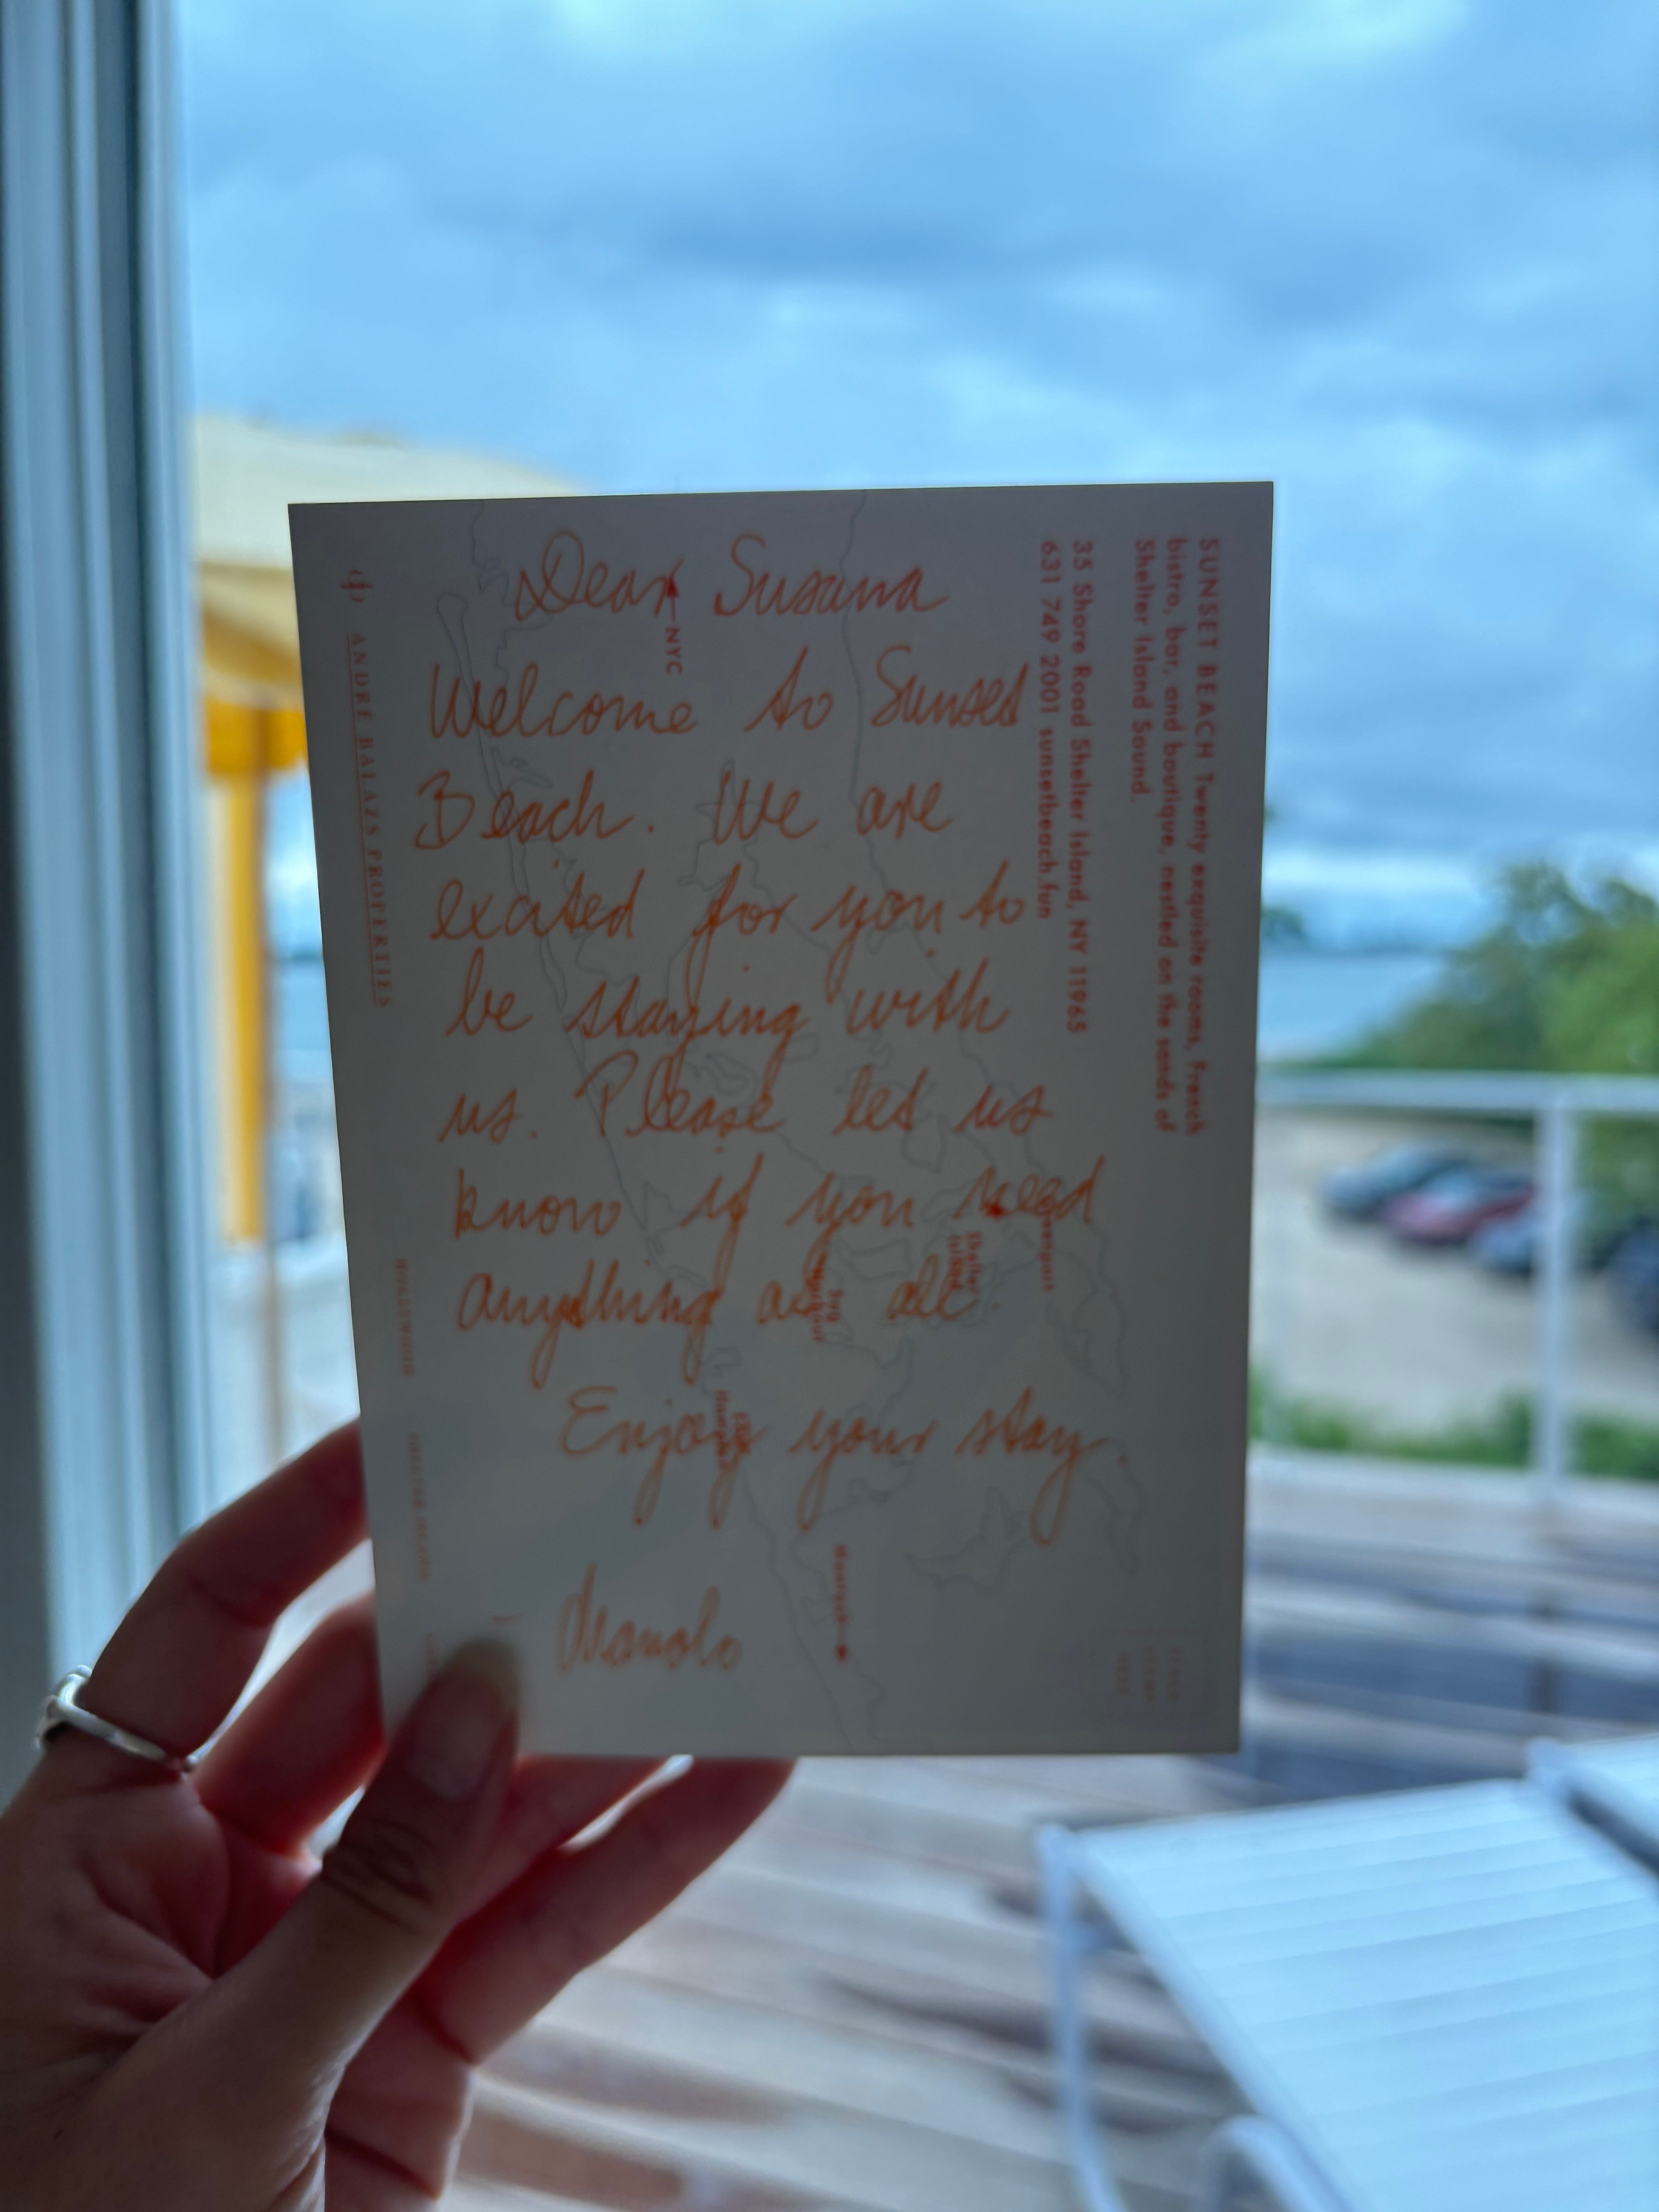 Dear Susana
Welcome to Sunset
Beach. We are
excited for you to
be staying with
us. Please let us
know if you need
anything at all.
Enjoy your stay.
- Manolo
SUNSET BEACH Twenty exquisite rooms, French
bistro, bar, and boutique, nestled on the sands of
Shelter Island Sound.
35 Shore Road Shelter Island, NY 11965
631 749 2001 sunsetbeach.fun
NYC
Shelter
Island
Sag
Harbour
East
Hampton
Montauk
ANDRE BALAZS PROPERTIES
HOLLYWOOD
SHELTER ISLAND